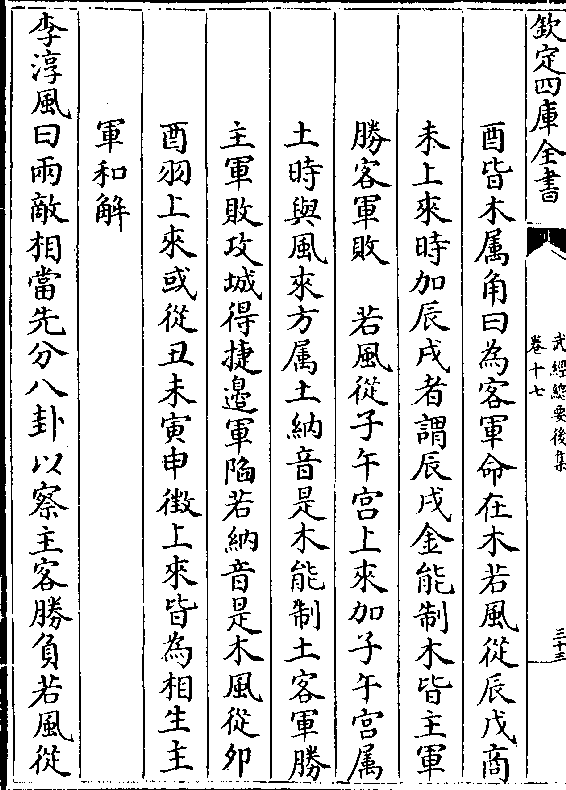 欽定四庫全書
武經總要後集
卷十七
三十三
酉皆木属角曰為客軍命在木若風從辰戌商
未上來時加辰戌者謂辰戌金能制木皆主軍
勝客軍敗　若風從子午宮上來加子午宮属
土時與風來方属土納音是木能制土客軍勝
主軍敗攻城得捷邉軍陷若納音是木風從卯
酉羽上來或從丑未寅申徴上來皆為相生主
軍和解
李淳風曰兩敵相當先分八卦以察主客勝負若風從